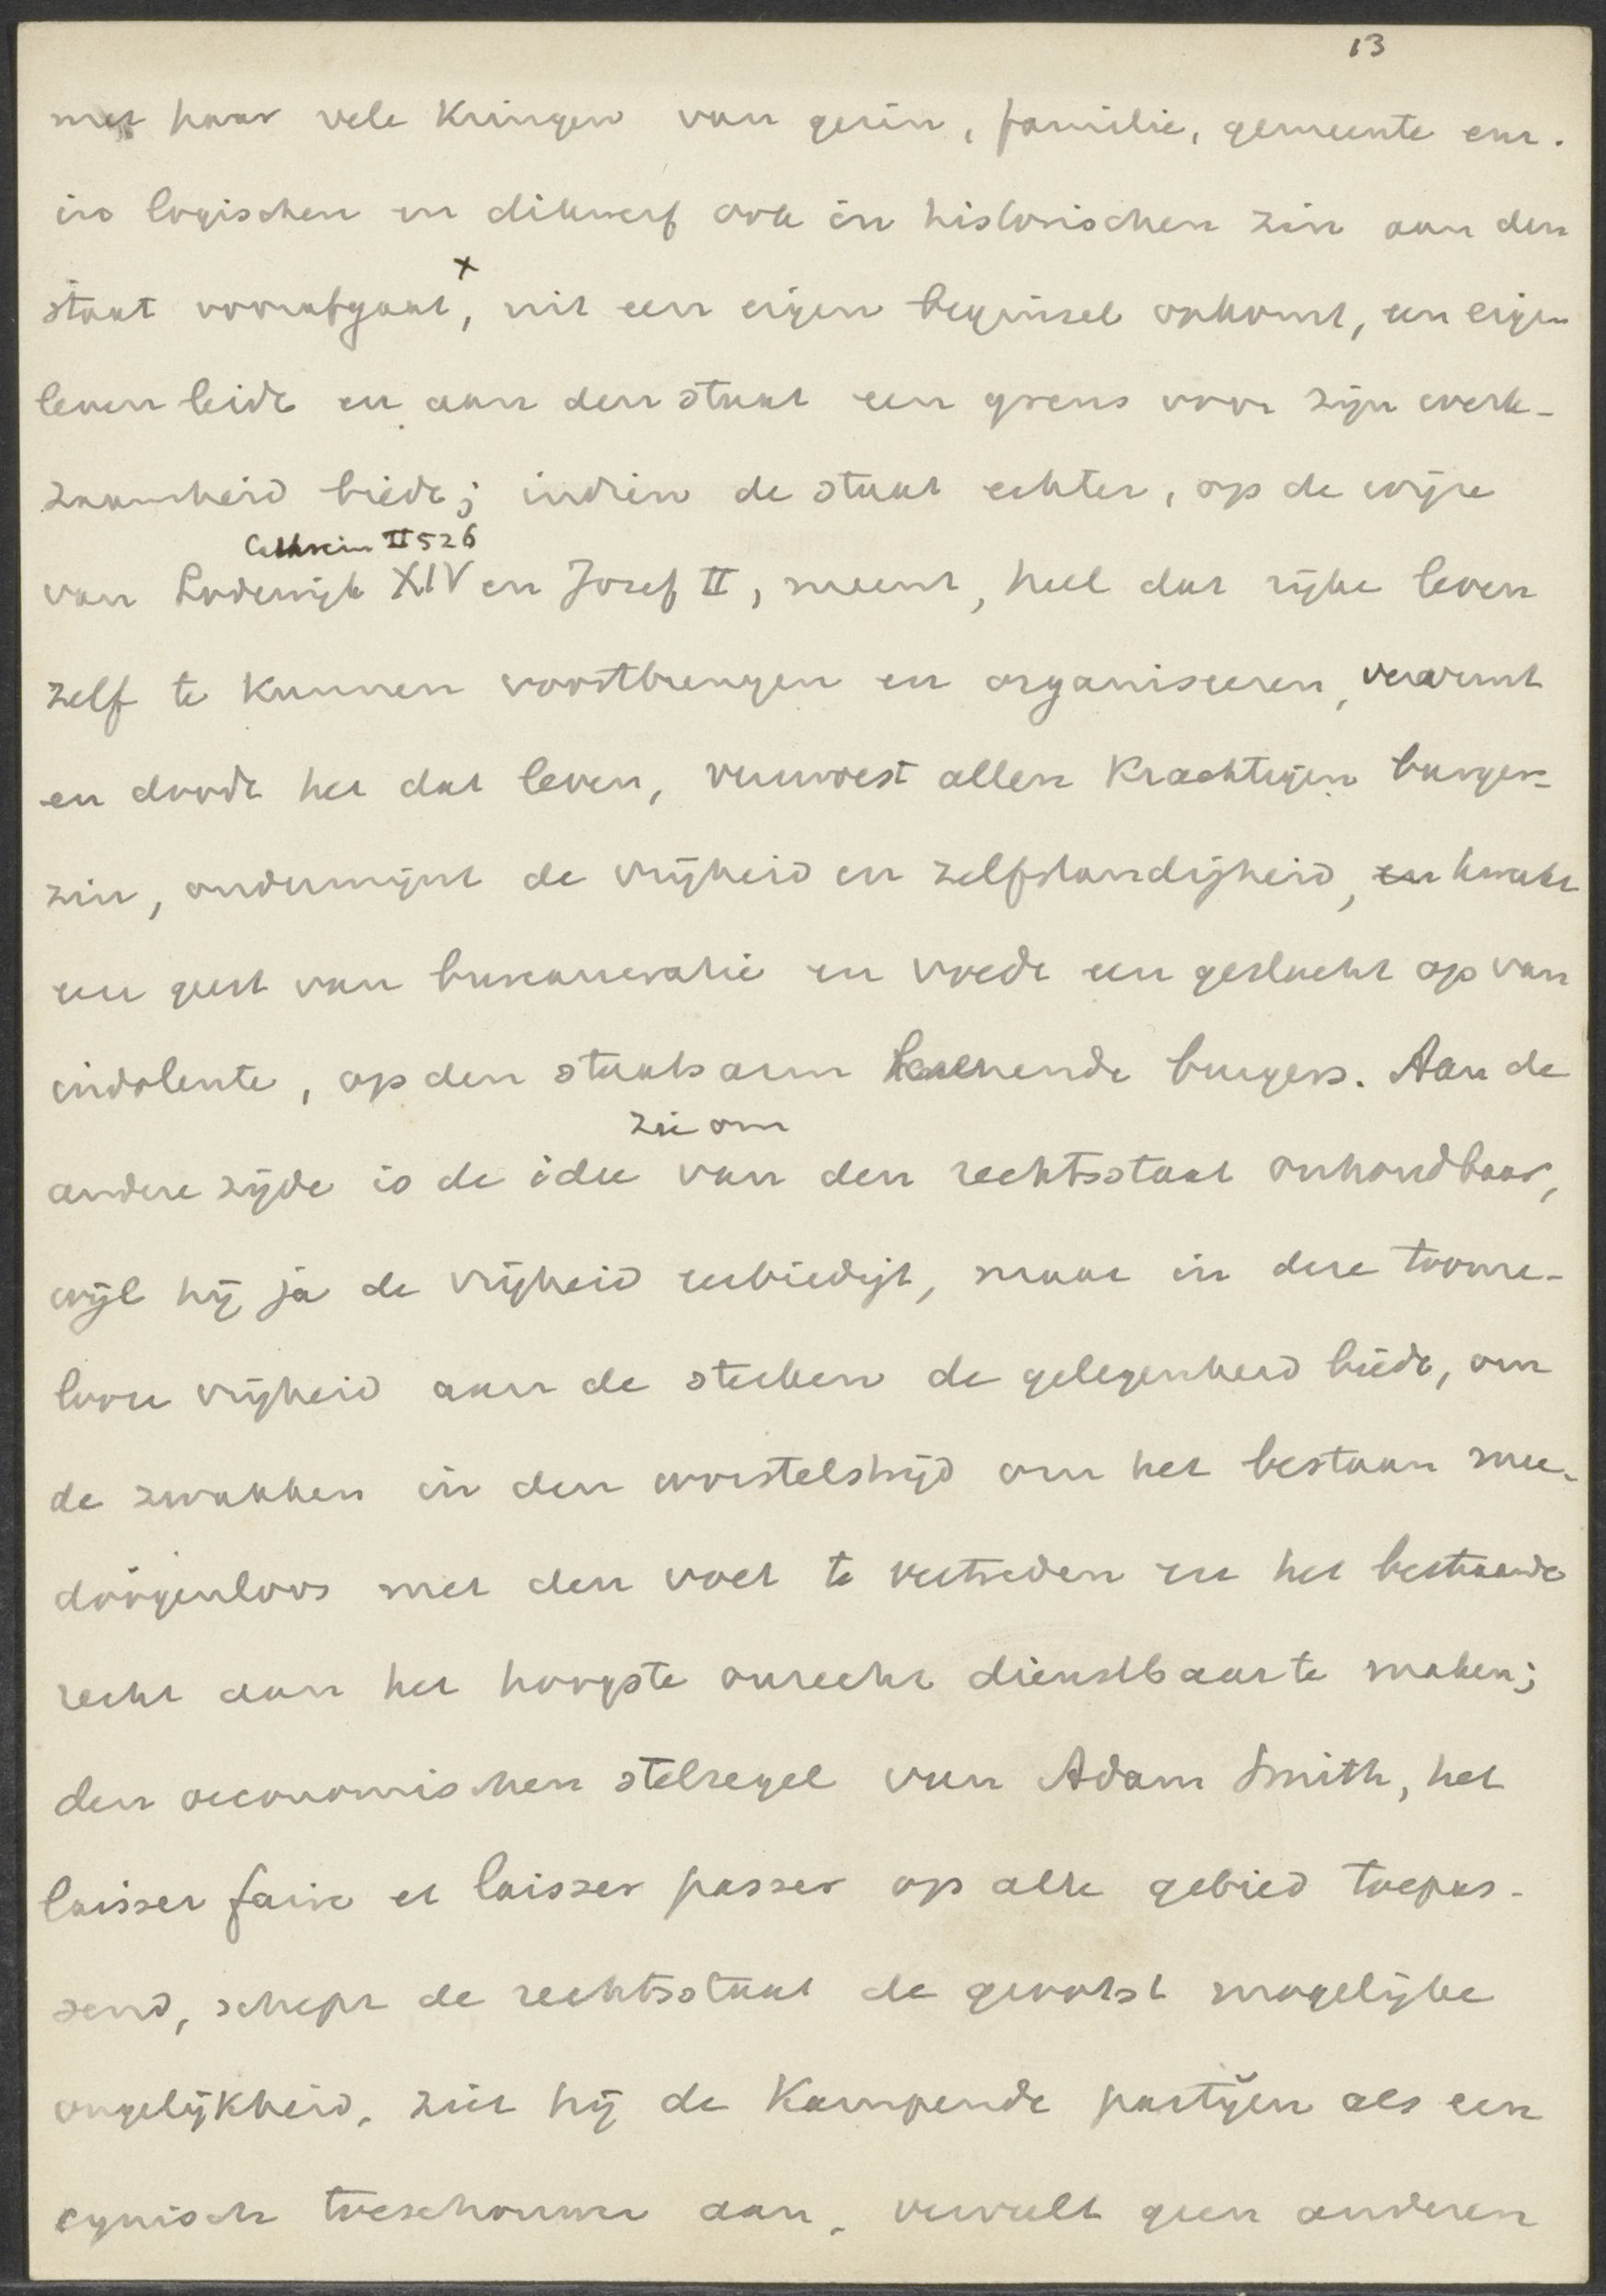 13
met haar vele kringen van gezin, familie, gemeente enz.
in logischen en dikwerf ook in historischen zin aan den
x
staat voorafgaat, uit een eigen beginsel opkomt, een eigen
leven leidt en aan den staat een grens voor zijn werk-
zaamheid biedt; indien de staat echter, op de wijze
Cathrein II 526
van Lodewijk XIV en Jozef II, meent, heel dat rijke leven
zelf te kunnen voortbrengen en organiseeren, verarmt
en doodt hij dat leven, verwoest allen krachtigen burger-
zin, ondermijnt de vrijheid en zelfstandigheid, en kweekt
een geest van bureaucratie en voedt een geslacht op van
indolente, op den staatsarm leunende burgers. Aan de
zie om
andere zijde is de idee van den rechtsstaat onhoudbaar,
wijl hij ja de vrijheid eerbiedigt, maar in deze toome-
looze vrijheid aan de sterken de gelegenheid biedt, om
de zwakken in den worstelstrijd om het bestaan mee-
dogenloos met den voet te vertreden en het bestaande
recht aan het hoogste onrecht dienstbaar te maken;
den oeconomischen stelregel van Adam Smith, het
laisser faire et laisser passer op alle gebied toepas-
send, schept de rechtsstaat de grootst mogelijke
ongelijkheid, ziet hij de kampende partijen als een
cynisch toeschouwer aan, vervult geen anderen